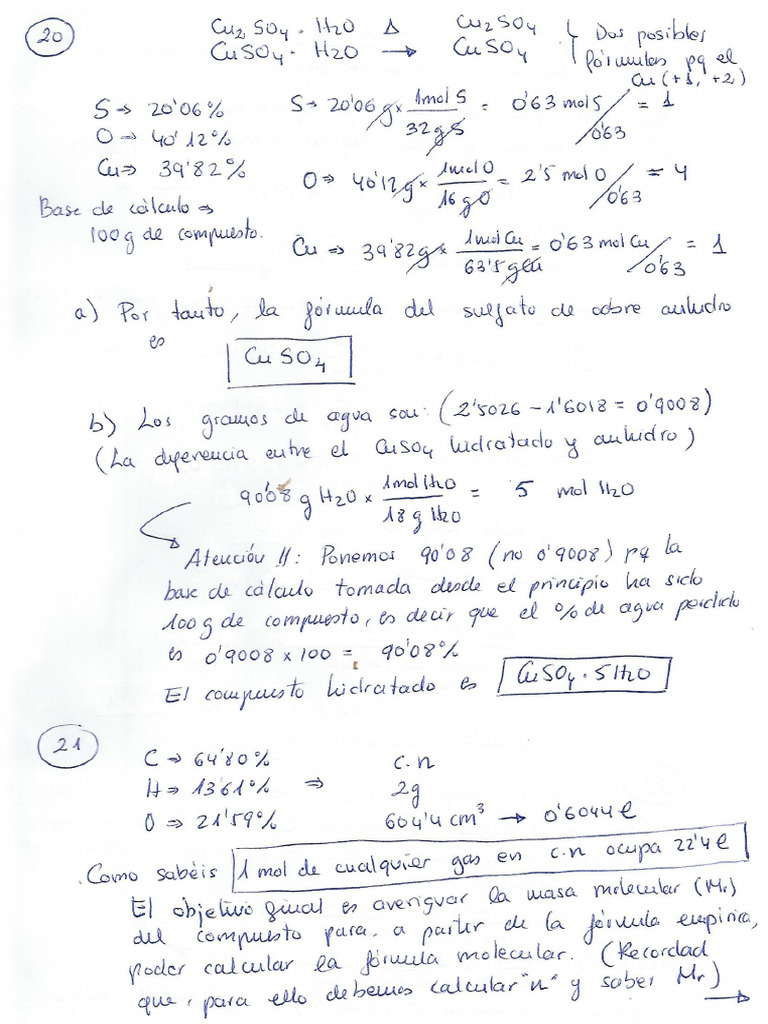 20
Cu₂SO₄ · H₂O Δ Cu₂SO₄
CuSO₄ · H₂O → CuSO₄
Dos posibles
fórmulas pq el
Cu (+1, +2)
S ⇒ 20'06%
O ⇒ 40'12%
Cu ⇒ 39'82%
Base de cálculo ⇒
100g de compuesto.
S ⇒ 20'06 g × 1mol S / 32 g S = 0'63 mol S / 0'63 = 1
O ⇒ 40'12 g × 1mol O / 16 g O = 2'5 mol O / 0'63 = 4
Cu ⇒ 39'82 g × 1mol Cu / 63'5 g Cu = 0'63 mol Cu / 0'63 = 1
a) Por tanto, la fórmula del sulfato de cobre anhidro
es CuSO₄
b) Los gramos de agua son: (2'5026 - 1'6018 = 0'9008)
(La diferencia entre el CuSO₄ hidratado y anhidro)
90'08 g H₂O × 1mol H₂O / 18 g H₂O = 5 mol H₂O
Atención!!: Ponemos 90'08 (no 0'9008) pq la
base de cálculo tomada desde el principio ha sido
100g de compuesto, es decir que el % de agua perdido
es 0'9008 × 100 = 90'08%
El compuesto hidratado es CuSO₄ · 5 H₂O
21
C ⇒ 64'80% c.n
H ⇒ 13'61% ⇒ 2g
O ⇒ 21'59% 604'4 cm³ → 0'6044 l
Como sabéis 1 mol de cualquier gas en c.n ocupa 22'4 l
El objetivo final es averiguar la masa molecular (Mr)
del compuesto para, a partir de la fórmula empírica,
poder calcular la fórmula molecular. (Recordad
que, para ello debemos calcular "n" y saber Mr) →